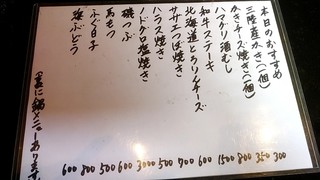 本日のおすすめ
三陸産かき(一個) 300
かきチーズ焼き(一個) 350
ハマグリ酒むし 800
和牛ステーキ 1500
北海道とろりんチーズ 600
サザエつぼ焼き 700
ハラス焼き 500
ノドグロ塩焼き 3000
磯つぶ 600
馬もつ 500
ふぐ白子 800
海ぶどう 600
裏に鍋メニューあります